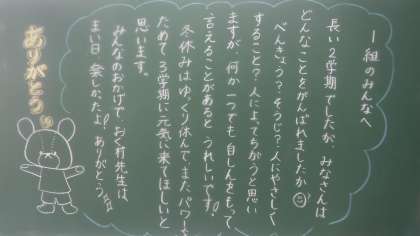 1組のみんなへ
長い2学期でしたが、みなさんは
どんなことをがんばれましたか
べんきょう?そうじ?人にやさしく
すること?人によってちがうと思い
ますが、何か一つでも自しんをもって
言えることがあると、うれしいです!
冬休みはゆっくり休んで、またパワーを
ためて3学期に元気に来てほしいと
思います。
みんなのおかげで、おく村先生は、
まい日楽しかったよ!ありがとう
ありがとう